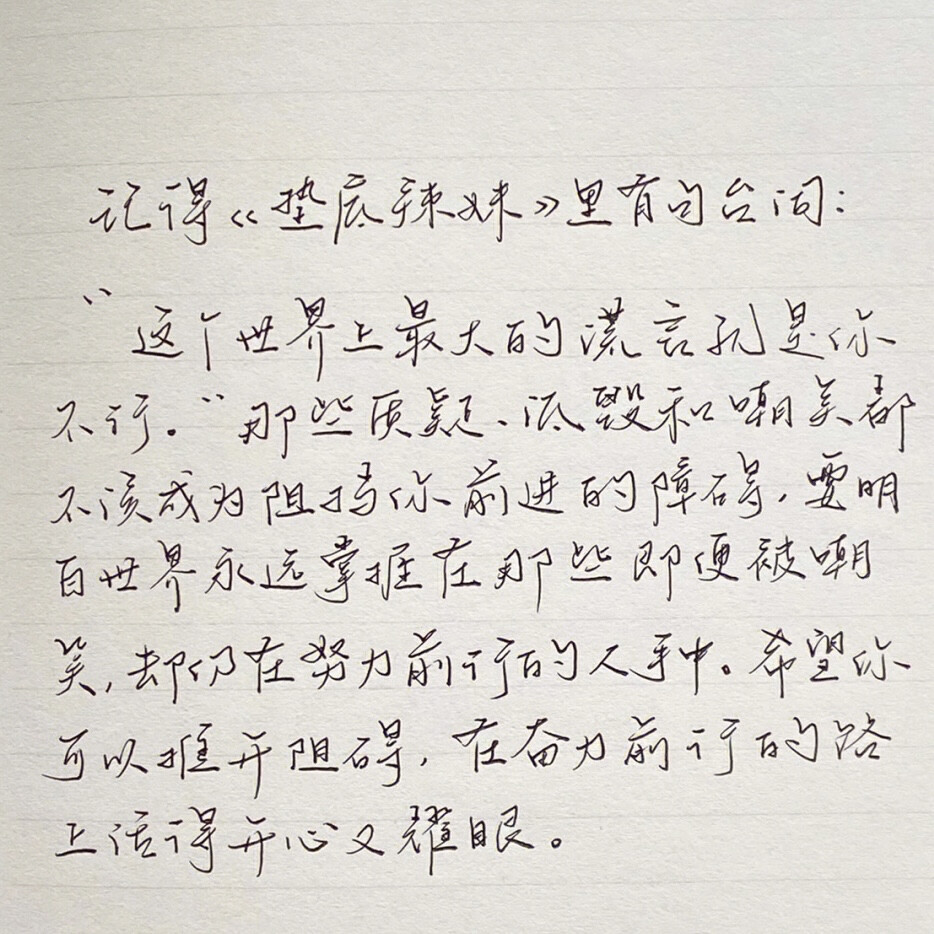 记得《垫底辣妹》里有句台词:
“这个世界上最大的谎言就是你
不行。”那些质疑、诋毁和嘲笑都
不该成为阻挡你前进的障碍,要明
白世界永远掌握在那些即便被嘲
笑,却仍在努力前行的人手中。希望你
可以推开阻碍,在奋力前行的路
上活得开心又耀眼。